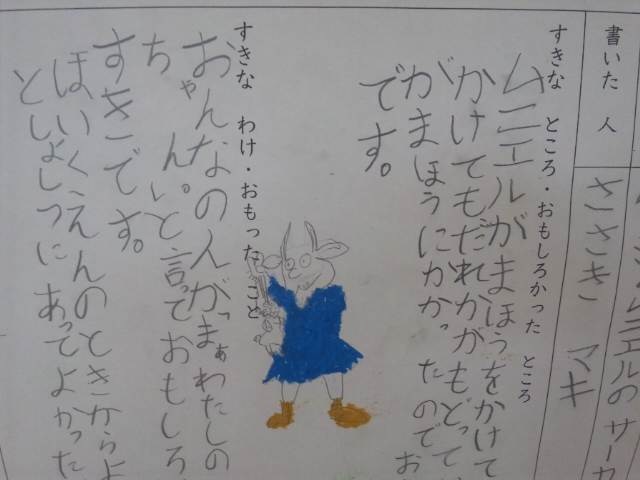 ムニエルのサーカ
書いた 人 ささき マキ
すきな ところ・おもしろかった ところ
ムニエルがまほうをかけて
かけてもだれかがもどって
がまほうにかかったのでお
です。
すきな わけ・おもったこと
おんなの人がっまぁわたしの
ちゃん。と言っておもしろ
すきです。
ほいくえんのときからよ
としょしつにあってよかった